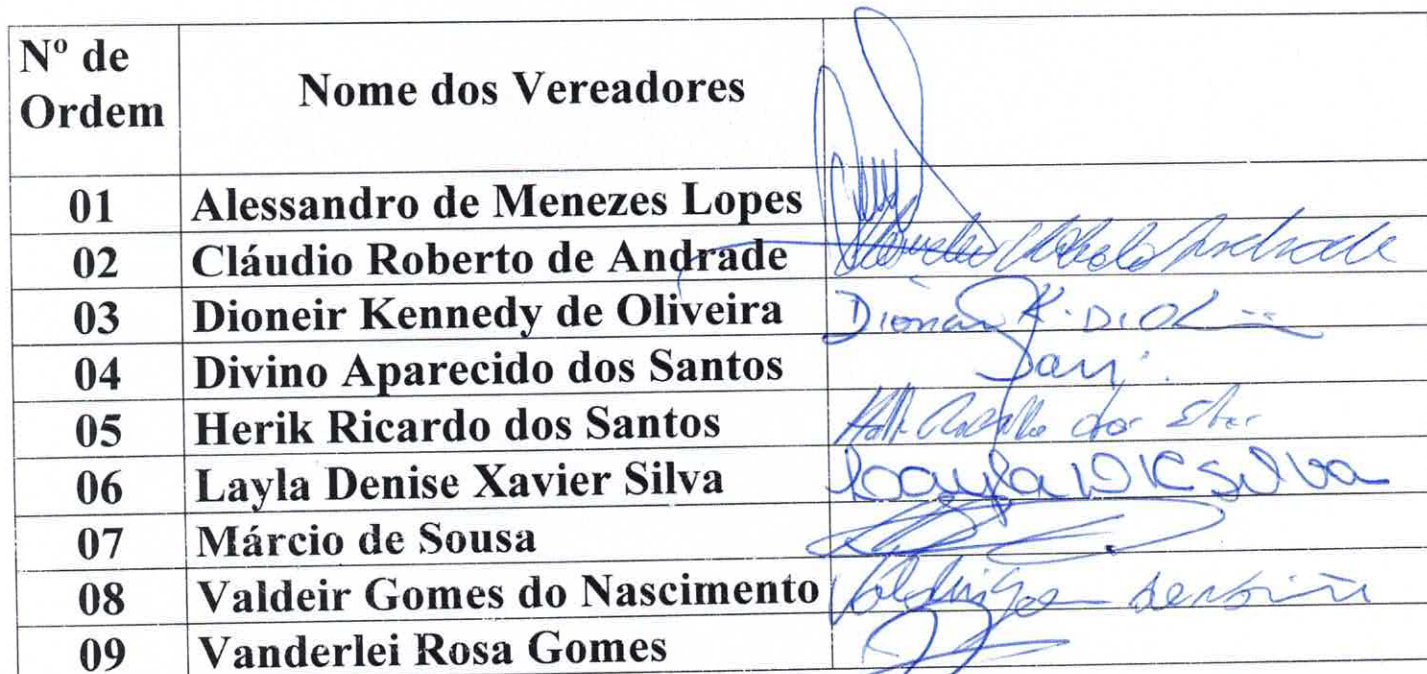 Nº de
Ordem
Nome dos Vereadores
01 Alessandro de Menezes Lopes
02 Cláudio Roberto de Andrade Andrade
03 Dioneir Kennedy de Oliveira
04 Divino Aparecido dos Santos
05 Herik Ricardo dos Santos
06 Layla Denise Xavier Silva Layla D X Silva
07 Márcio de Sousa
08 Valdeir Gomes do Nascimento
09 Vanderlei Rosa Gomes